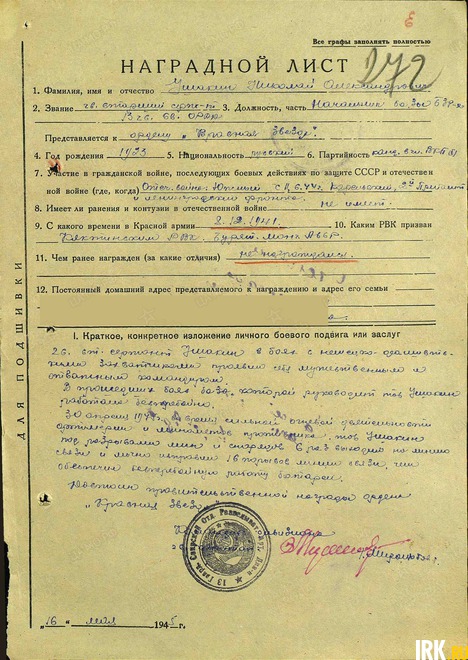 Все графы заполнять полностью
272
НАГРАДНОЙ ЛИСТ
1. Фамилия, имя и отчество Ушакин Николай Александрович
2. Звание гв. старший серж-т 3. Должность, часть Начальник
Представляется к ордену "Красная Звезда"
4. Год рождения 1923 5. Национальность русский 6. Партийность канд. ВКП(б)
7. Участие в гражданской войне, последующих боевых действиях по защите СССР и отечествен-
ной войне (где, когда) Отеч. войне: Южный с 8.6.42г. Карельский, Прибалт
и ленинградский фронты.
8. Имеет ли ранения и контузии в отечественной войне не имеет.
9. С какого времени в Красной армии 2.12.1941. 10. Каким РВК призван
Кяхтинским РВК. Бурят. Монг. АССР.
11. Чем ранее награжден (за какие отличия) не награждался.
12. Постоянный домашний адрес представляемого к награждению и адрес его семьи
I. Краткое, конкретное изложение личного боевого подвига или заслуг
Гв. ст. сержант Ушакин в боях с немецко-фашистс-
кими захватчиками проявил себя мужественным и
отважным командиром.
В прошедших боях которой руководит тов. Ушакин
работали бесперебойно.
30 апреля во время сильной огневой деятельности
артиллерии и минометов противника тов. Ушакин
под разрывами мин и снарядов 6 раз выходил на линию
связи и лично исправил 16 порывов линии связи, чем
обеспечил бесперебойную работу батареи.
Достоин правительственной награды ордена
"Красная Звезда"
13 Гвард. Отд. Разведывательный
"16" мая 1945 г.
ДЛЯ ПОДШИВКИ
IRK.RU